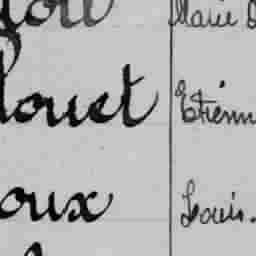 Marie
louet Étienn
oux Louis.